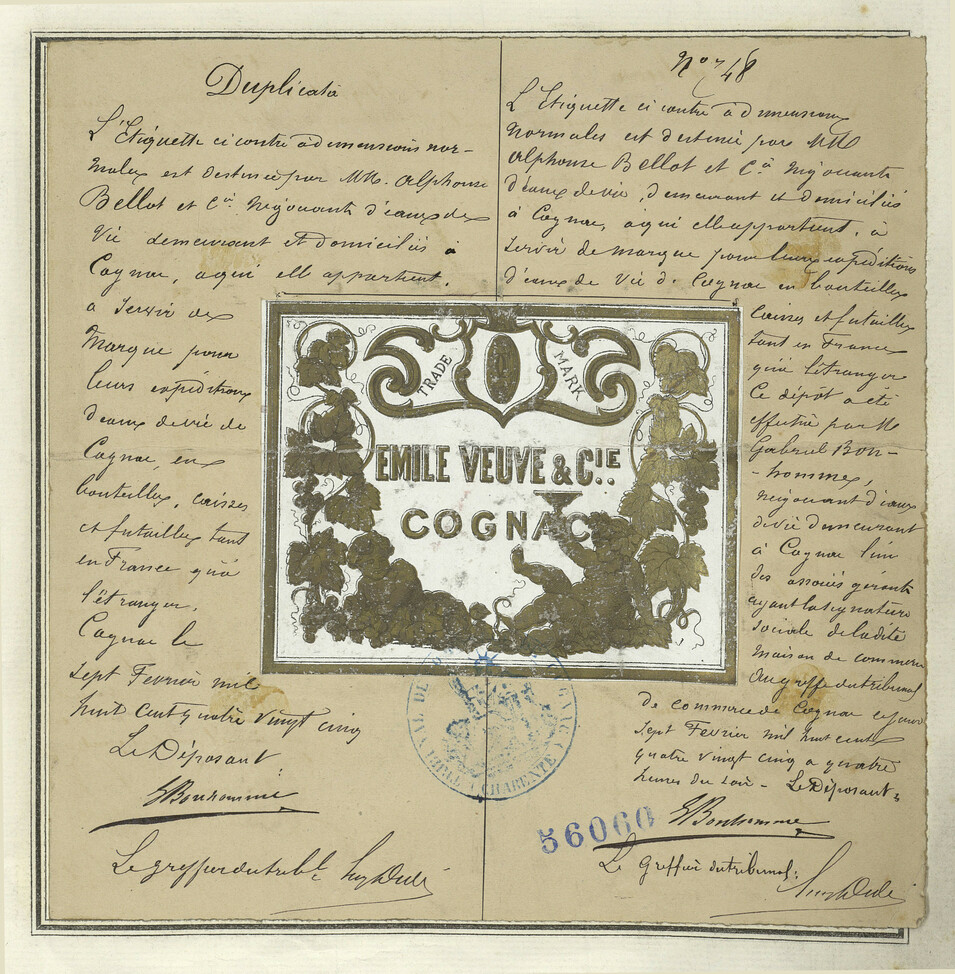 Duplicata
L'Etiquette ci contre à dimensions nor-
males est destinée par MM. Alphonse
Bellot et Cie. Négociants d'eaux de
Vie demeurant et domiciliés à
Cognac, à qui elle appartient,
à servir de
Marque pour
leurs expéditions
d'eaux de vie de
Cognac, en
bouteilles, caisses
et futailles tant
en France qu'à
l'étranger.
Cognac le
sept Fevrier mil
huit cent quatre vingt cinq
Le Déposant
GBonhomme
Le greffier du tribl
No 748
L'Etiquette ci contre à dimensions
Normales est destinée par MM
Alphonse Bellot et Cie Négociants
d'eaux de vie, demeurant et domiciliés
à Cognac, à qui elle appartient, à
servir de marque pour leurs expéditions
d'eaux de Vie de Cognac en bouteilles
Caisses et futailles
tant en France
qu'à l'étranger
Ce dépôt a été
effectué par M
Gabriel Bon-
-homme,
négociant d'eaux
de vie demeurant
à Cognac l'un
des associés gérants
ayant la signature
sociale de la dite
Maison de commerce
Au greffe du tribunal
de commerce de Cognac ce jour
sept Fevrier mil huit cent
quatre vingt cinq à quatre
heures du soir - Le Déposant
GBonhomme
Le Greffier du tribunal:
TRADE MARK
EMILE VEUVE & CIE..
COGNAC
CHARENTE
56060